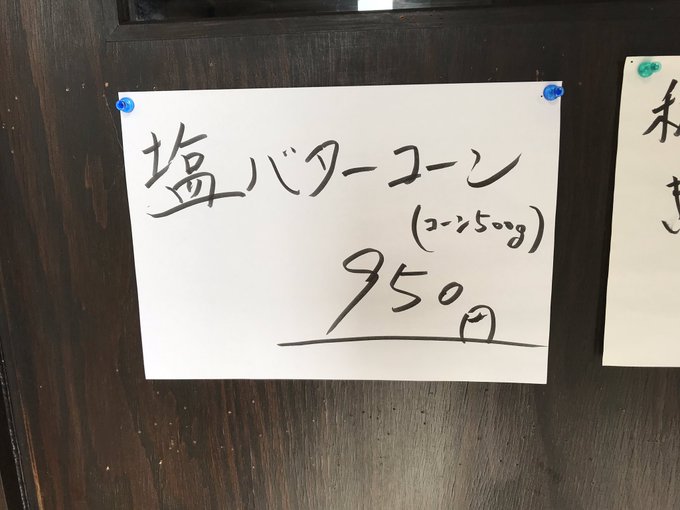 塩バターコーン
(コーン500g)
950円